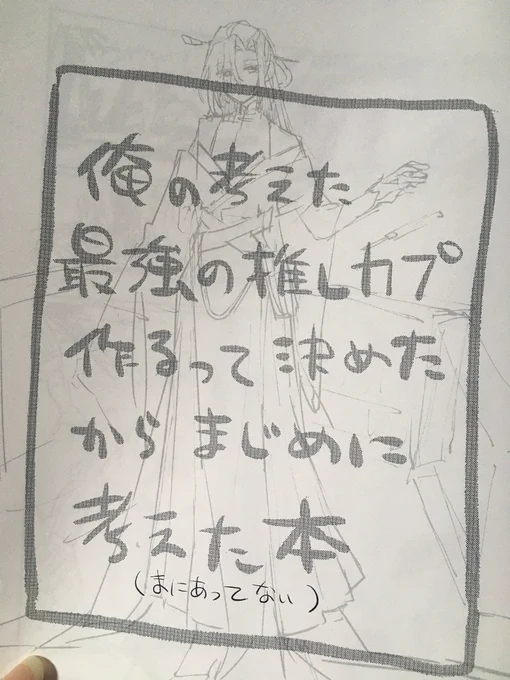 俺の考えた
最強の推しカプ
作るって決めた
からまじめに
考えた本
(まにあってない)